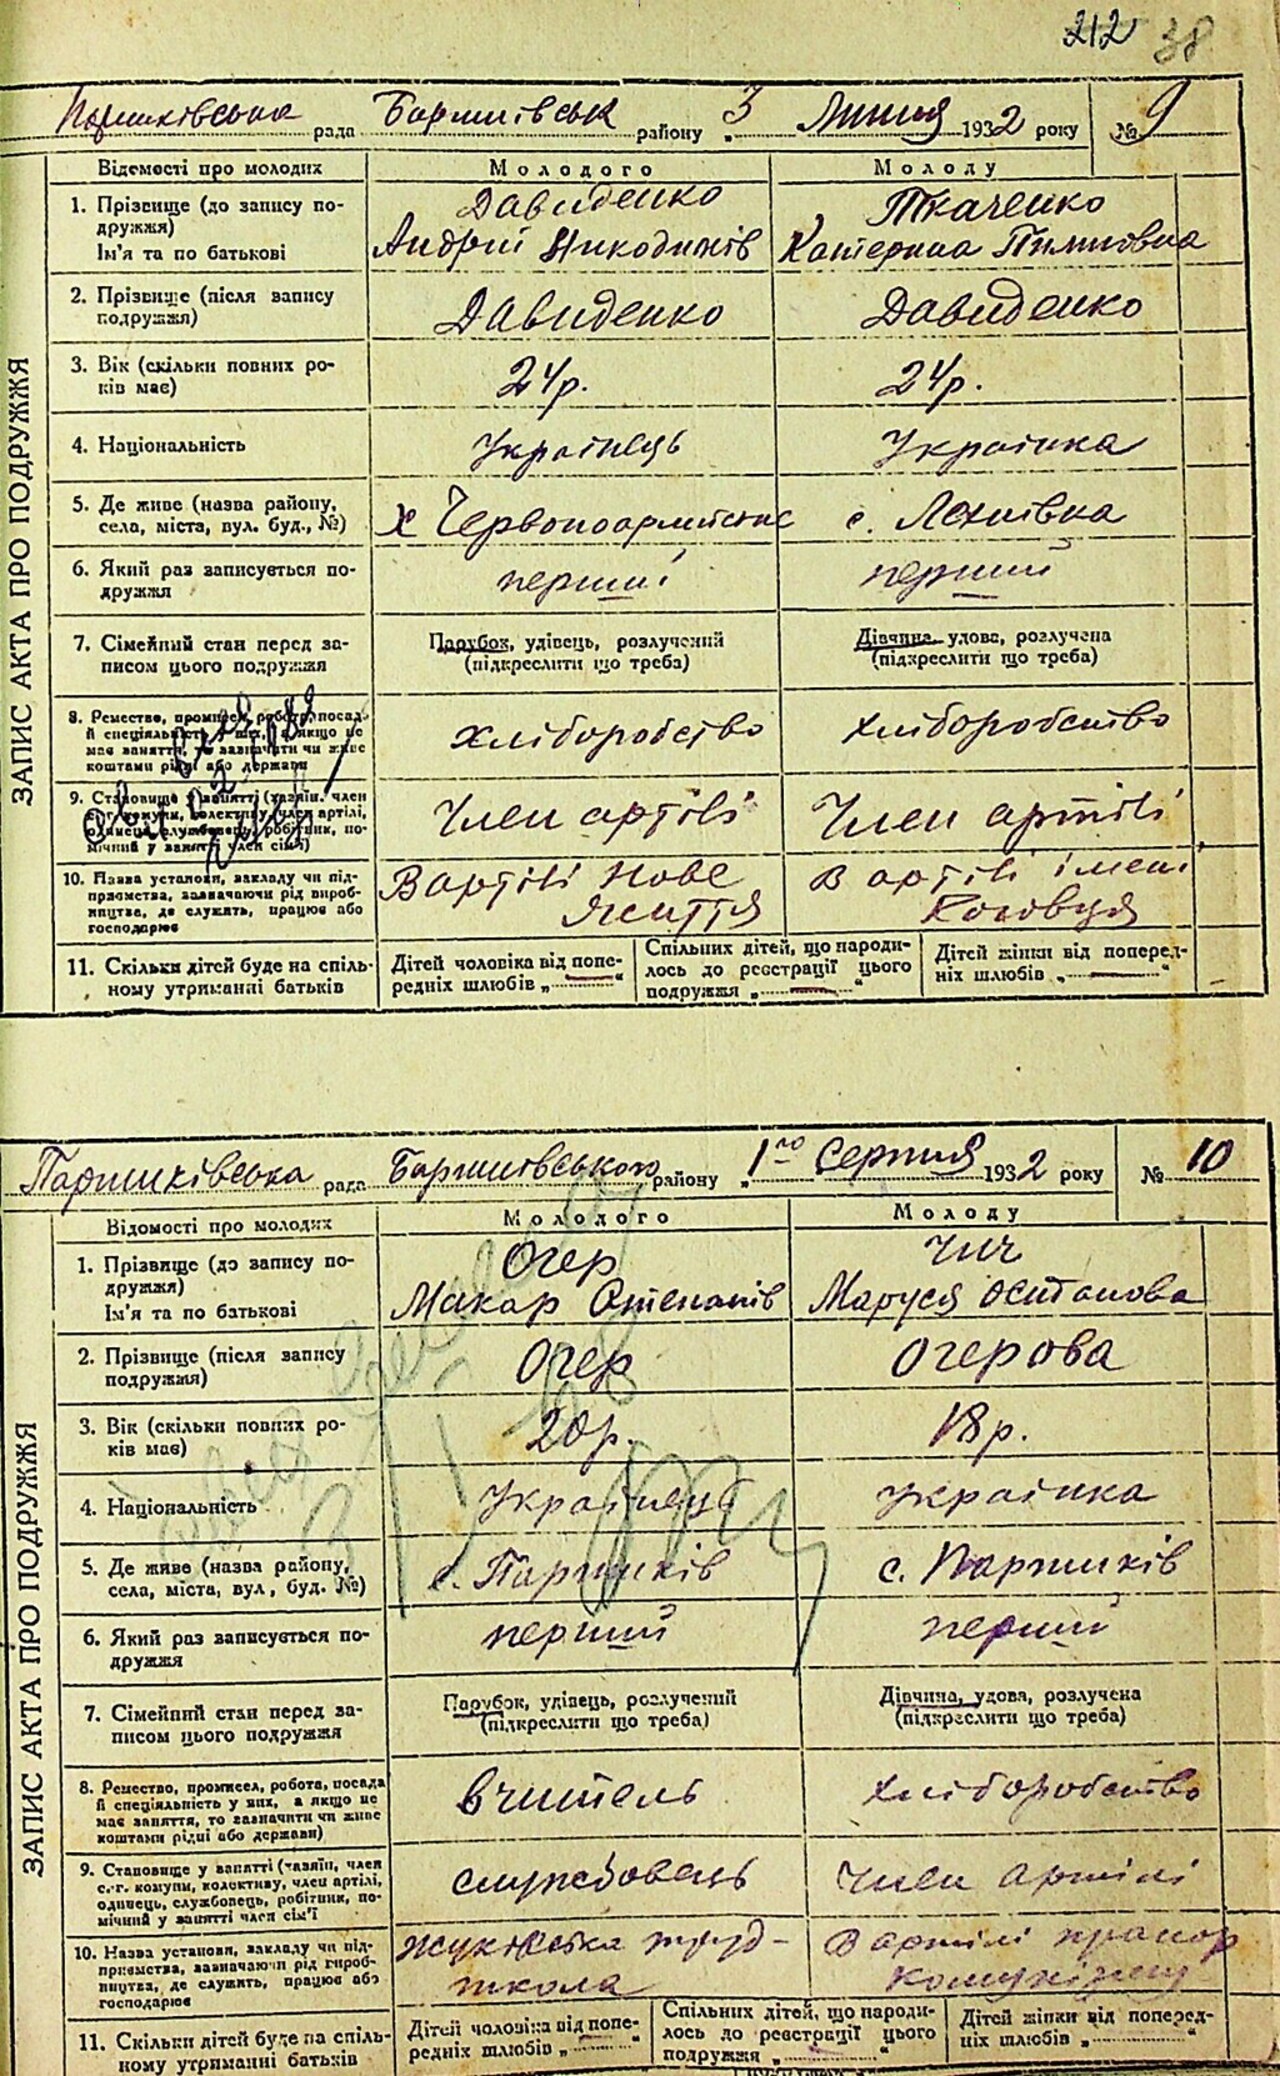 212 38
Паришківська рада Баришівськ району „ 3 Липня 1932 року № 9
Відомості про молодих Молодого Молоду
1. Прізвище (до запису по-
дружжя)
Ім'я та по батькові
Давиденко
Андрій Никодимів
Ткаченко
Катерина Пимиовна
2. Прізвище (після запису
подружжя)
Давиденко Давиденко
3. Вік (скільки повних ро-
ків має)
24р. 24р.
4. Національність Українець Українка
5. Де живе (назва району,
села, міста, вул. буд., №)
х Червоноармійське с. Лехнівка
6. Який раз записується по-
дружжя
перший перший
7. Сімейний стан перед за-
писом цього подружжя
Парубок, удівець, розлучений
(підкреслити що треба)
Дівчина, удова, розлучена
(підкреслити що треба)
8. Ремество, промисел, робота, посада
й спеціальність у них, а якщо не
має заняття, то зазначити чи живе
коштами рідні або держави
хліборобство хліборобство
9. Становище у занятті (хазяїн, член
с.-г. комуни, колективу, член артілі,
одинець, службовець, робітник, по-
мічний у занятті член сім'ї)
Член артілі Член артілі
10. Назва установи, закладу чи під-
приємства, зазначаючи рід вироб-
ництва, де служить, працює або
господарює
В артілі Нове
життя
В артілі імені
11. Скільки дітей буде на спіль-
ному утриманні батьків
Дітей чоловіка від попе-
редніх шлюбів „ — “
Спільних дітей, що народи-
лось до реєстрації цього
подружжя „ — “
Дітей жінки від поперед-
ніх шлюбів „ — “
ЗАПИС АКТА ПРО ПОДРУЖЖЯ
Паришківська рада Баришівського району „ 1го Серпня 1932 року № 10
Відомості про молодих Молодого Молоду
1. Прізвище (до запису по-
дружжя)
Ім'я та по батькові
Огер
Макар Степанів
Чич
Маруся Остапова
2. Прізвище (після запису
подружжя)
Огер Огерова
3. Вік (скільки повних ро-
ків має)
20р. 18р.
4. Національність Українець Українка
5. Де живе (назва району,
села, міста, вул, буд. №)
с. Паришків с. Паришків
6. Який раз записується по-
дружжя
перший перший
7. Сімейний стан перед за-
писом цього подружжя
Парубок, удівець, розлучений
(підкреслити що треба)
Дівчина, удова, розлучена
(підкреслити що треба)
8. Ремество, промисел, робота, посада
й спеціальність у них, а якщо не
має заняття, то зазначити чи живе
коштами рідні або держави)
вчитель хліборобство
9. Становище у занятті (хазяїн, член
с.-г. комуни, колективу, член артілі,
одинець, службовець, робітник, по-
мічний у занятті член сім'ї
службовець Член артілі
10. Назва установи, закладу чи під-
приємства, зазначаючи рід вироб-
ництва, де служить, працює або
господарює
труд-
школа
В артілі прапор
комунізму
11. Скільки дітей буде на спіль-
ному утриманні батьків
Дітей чоловіка від попе-
редніх шлюбів „ “
Спільних дітей, що народи-
лось до реєстрації цього
подружжя „ “
Дітей жінки від поперед-
ніх шлюбів „ “
ЗАПИС АКТА ПРО ПОДРУЖЖЯ